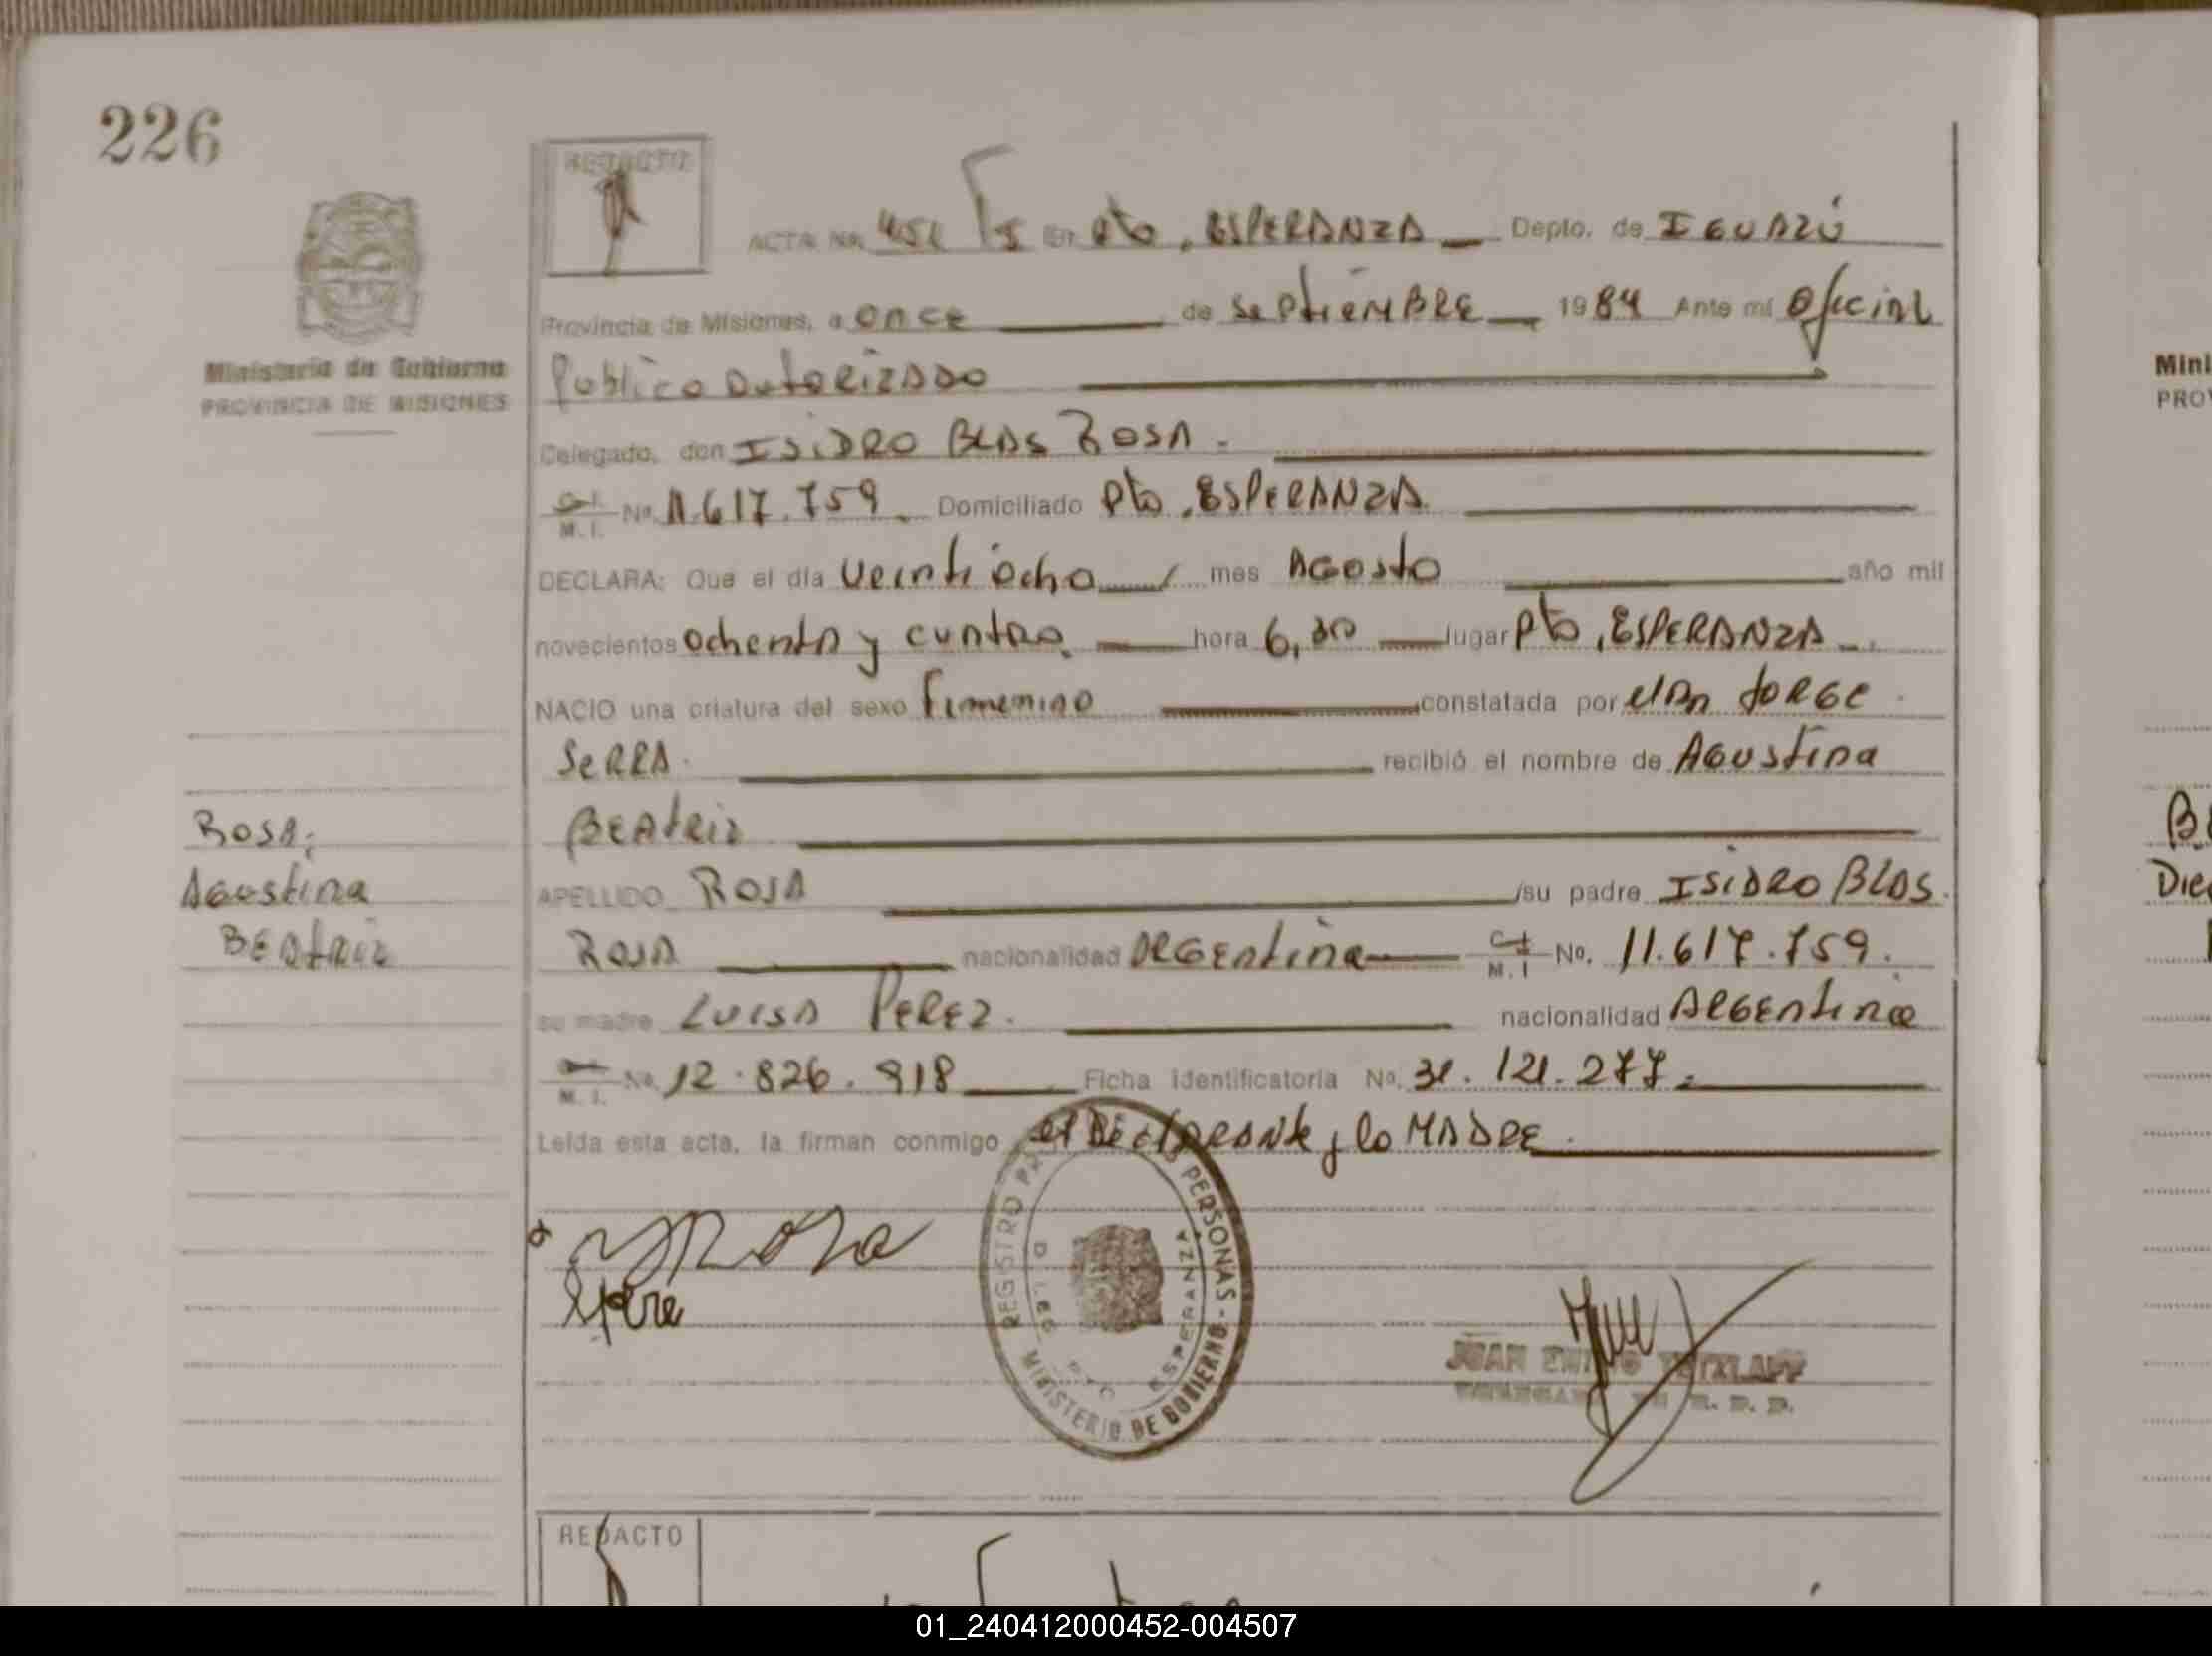 226
REDACTO
ACTA No. 451 T5 en Pto. ESPERANZA Depto. de IGUAZÚ
Provincia de Misiones, a once de septiEMBRE 1984 Ante mí Oficial
Público AutoRizADO
Ministerio de Gobierno
PROVINCIA DE MISIONES
Delegado, don ISIDRO BLAS ROSA.
C. I. M. I. No. 11.617.759. Domiciliado Pto. ESPERANZA
DECLARA: Que el día veinti ocho mes AGosto año mil
novecientos ochentA y cuAtRo hora 6,30 lugar Pto. ESPERANZA
NACIO una criatura del sexo Femenino constatada por JORGE
SeRRA. recibió el nombre de AGustina
BEAtriz
APELLIDO ROSA su padre ISIDRO BLAS.
ROSA nacionalidad ARGEntina C. I. M. I No. 11.617.759.
su madre LUISA PEREZ. nacionalidad ARGEntina
M. I. No. 12.826.918 Ficha identificatoria No. 31.121.277.
Leída esta acta, la firman conmigo el DeclARANte y la MADRE.
ROSA;
AGustina
BEAtriz
Rosa
REGISTRO PERSONAS - MINISTERIO DE GOBIERNO
PTO ESPERANZA
JUAN
R. P. P.
REDACTO
Mini
PROV
Die
01_240412000452-004507